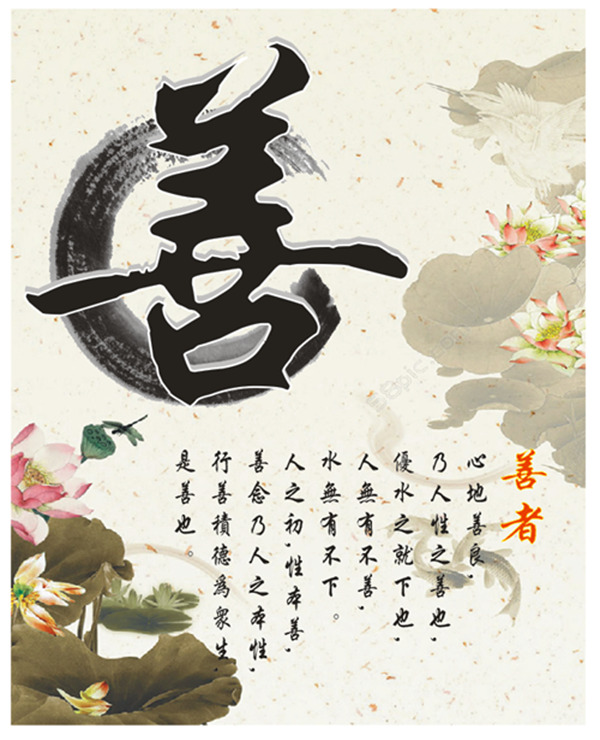 善
善者
心地善良,
乃人性之善也,
優水之就下也,
人無有不善,
水無有不下。
人之初,性本善,
善念乃人之本性,
行善積德爲衆生,
是善也。